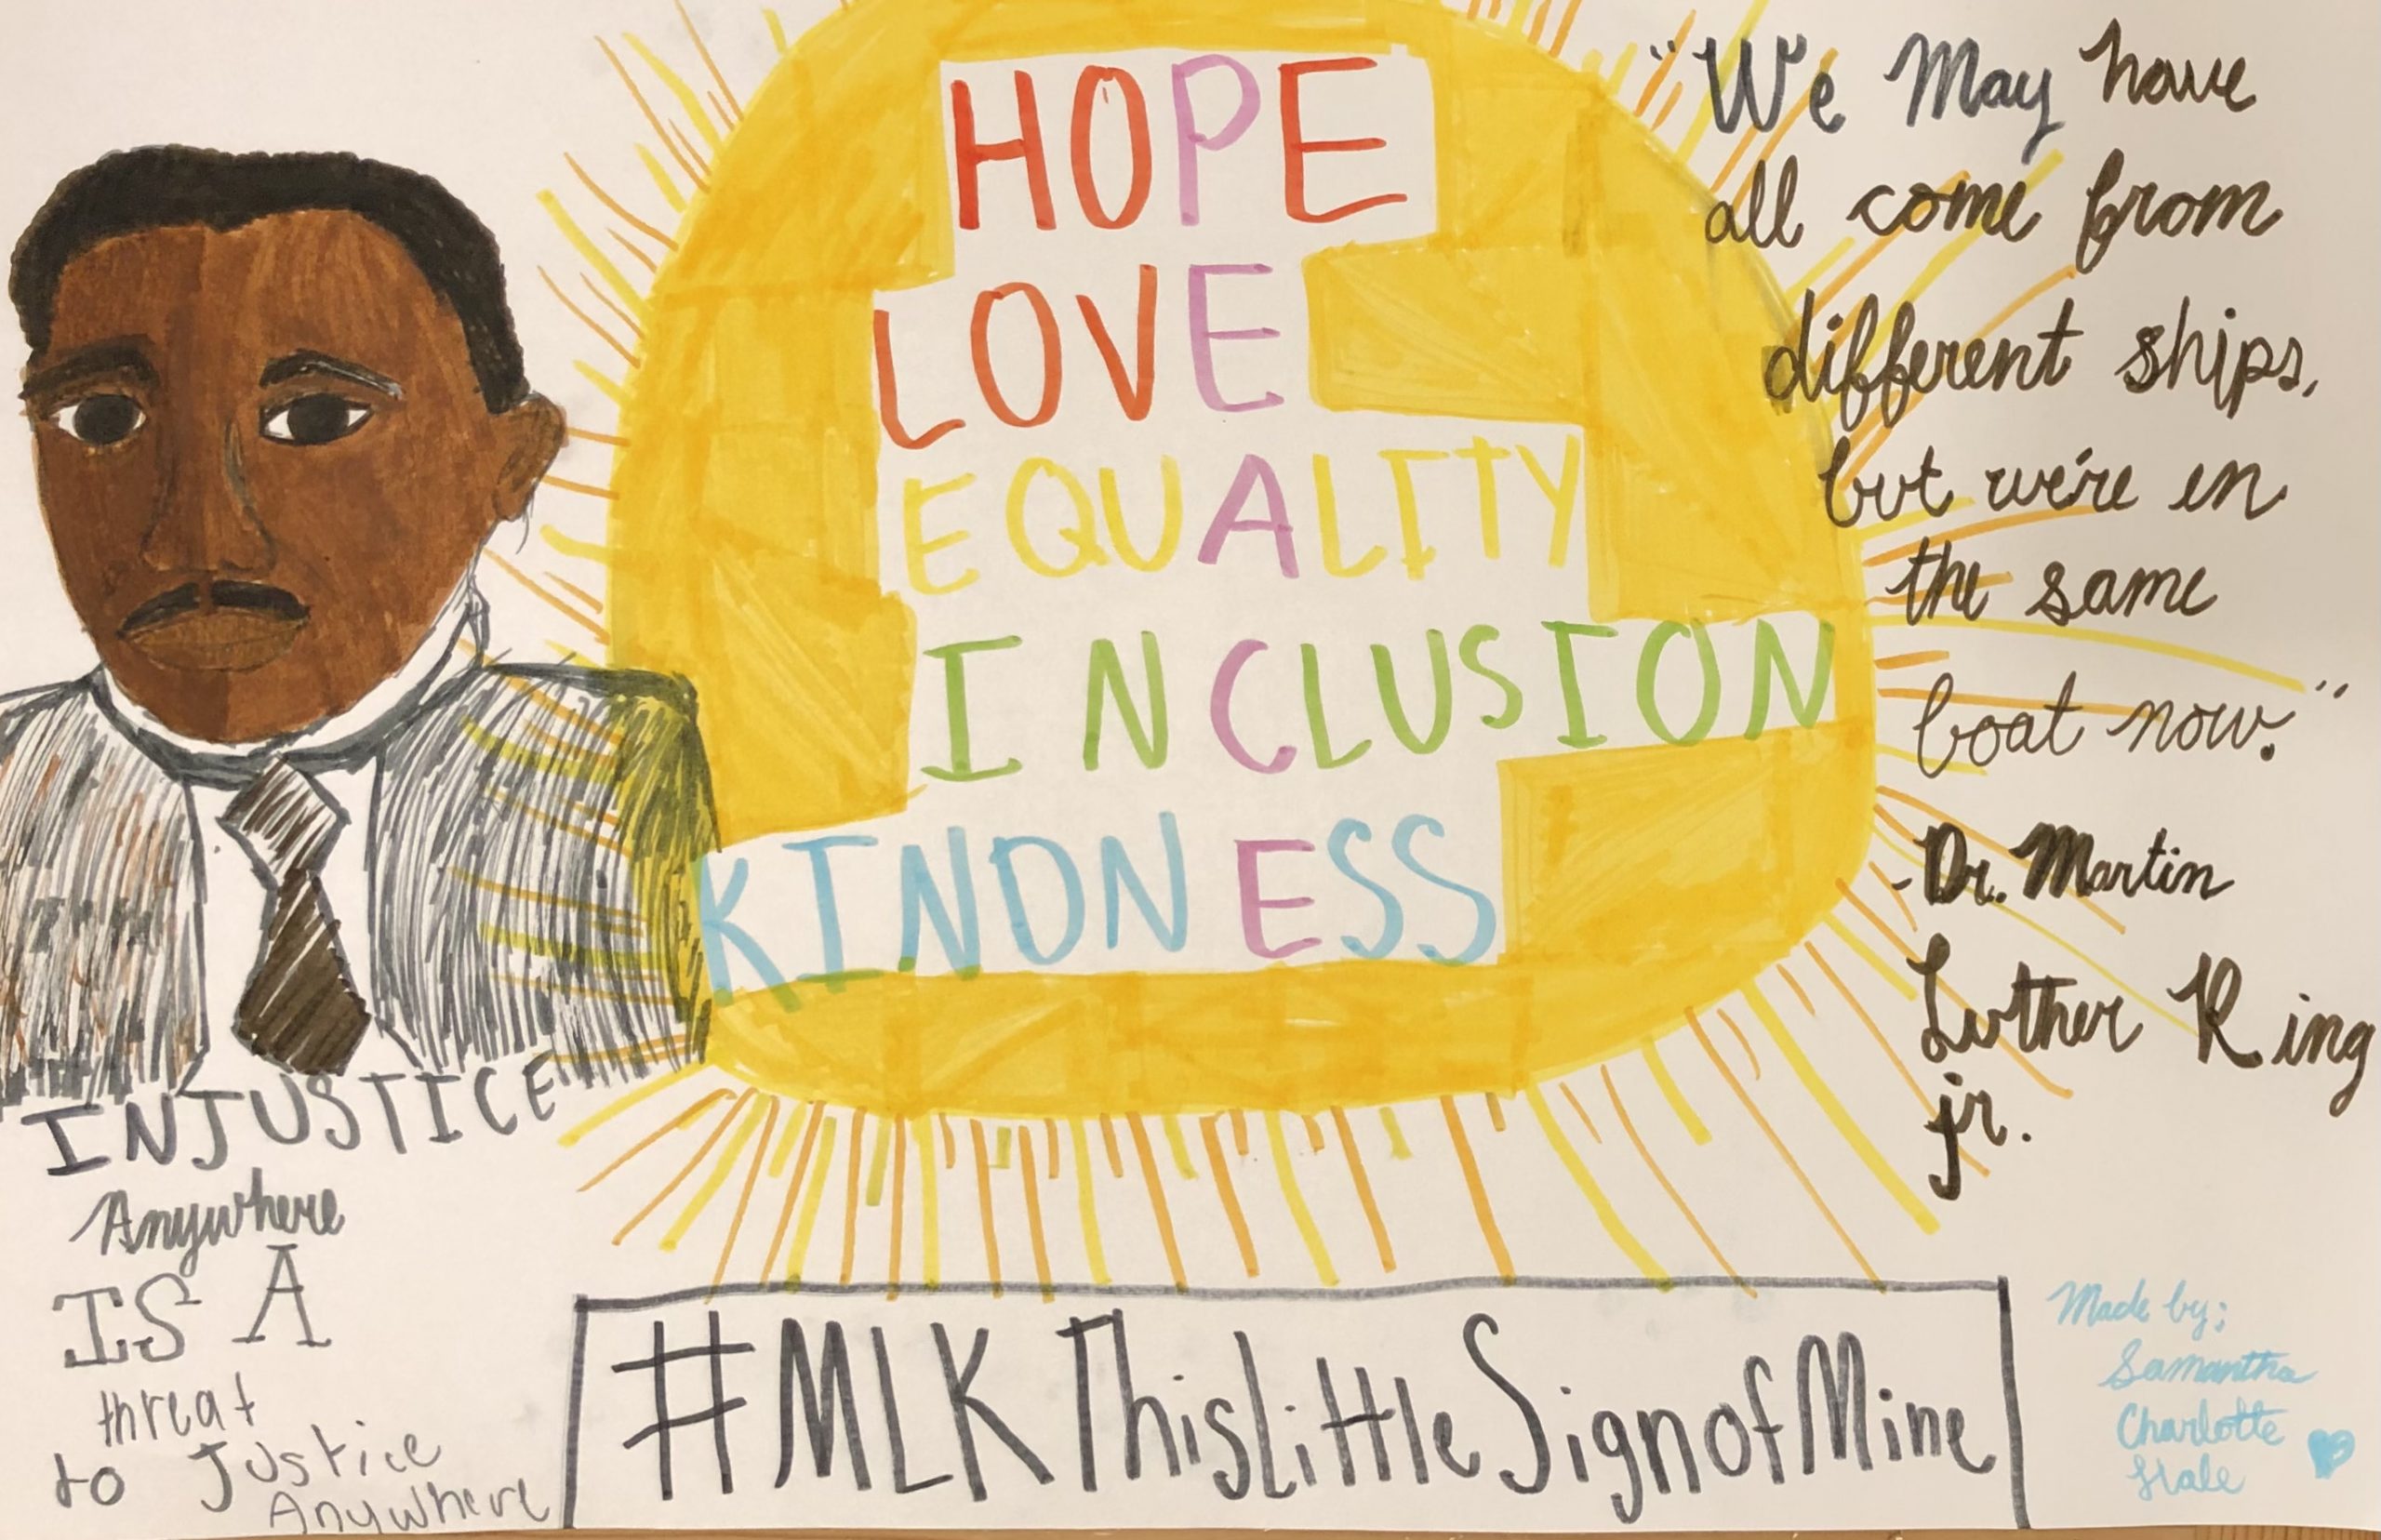 HOPE
LOVE
EQUALITY
INCLUSION
KINDNESS
"We May have
all come from
different ships,
but we're in
the same
boat now."
-Dr. Martin
Luther King
jr.
INJUSTICE
Anywhere
IS A
threat
to Justice
Anywhere
#MLKThisLittleSignofMine
Made by;
Samantha
Charlotte
Hale